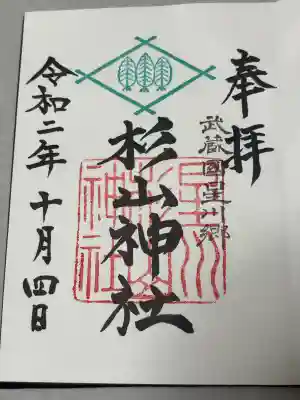 奉拝
武蔵國星川郷
杉山神社
星川杉山神社
令和二年十月四日